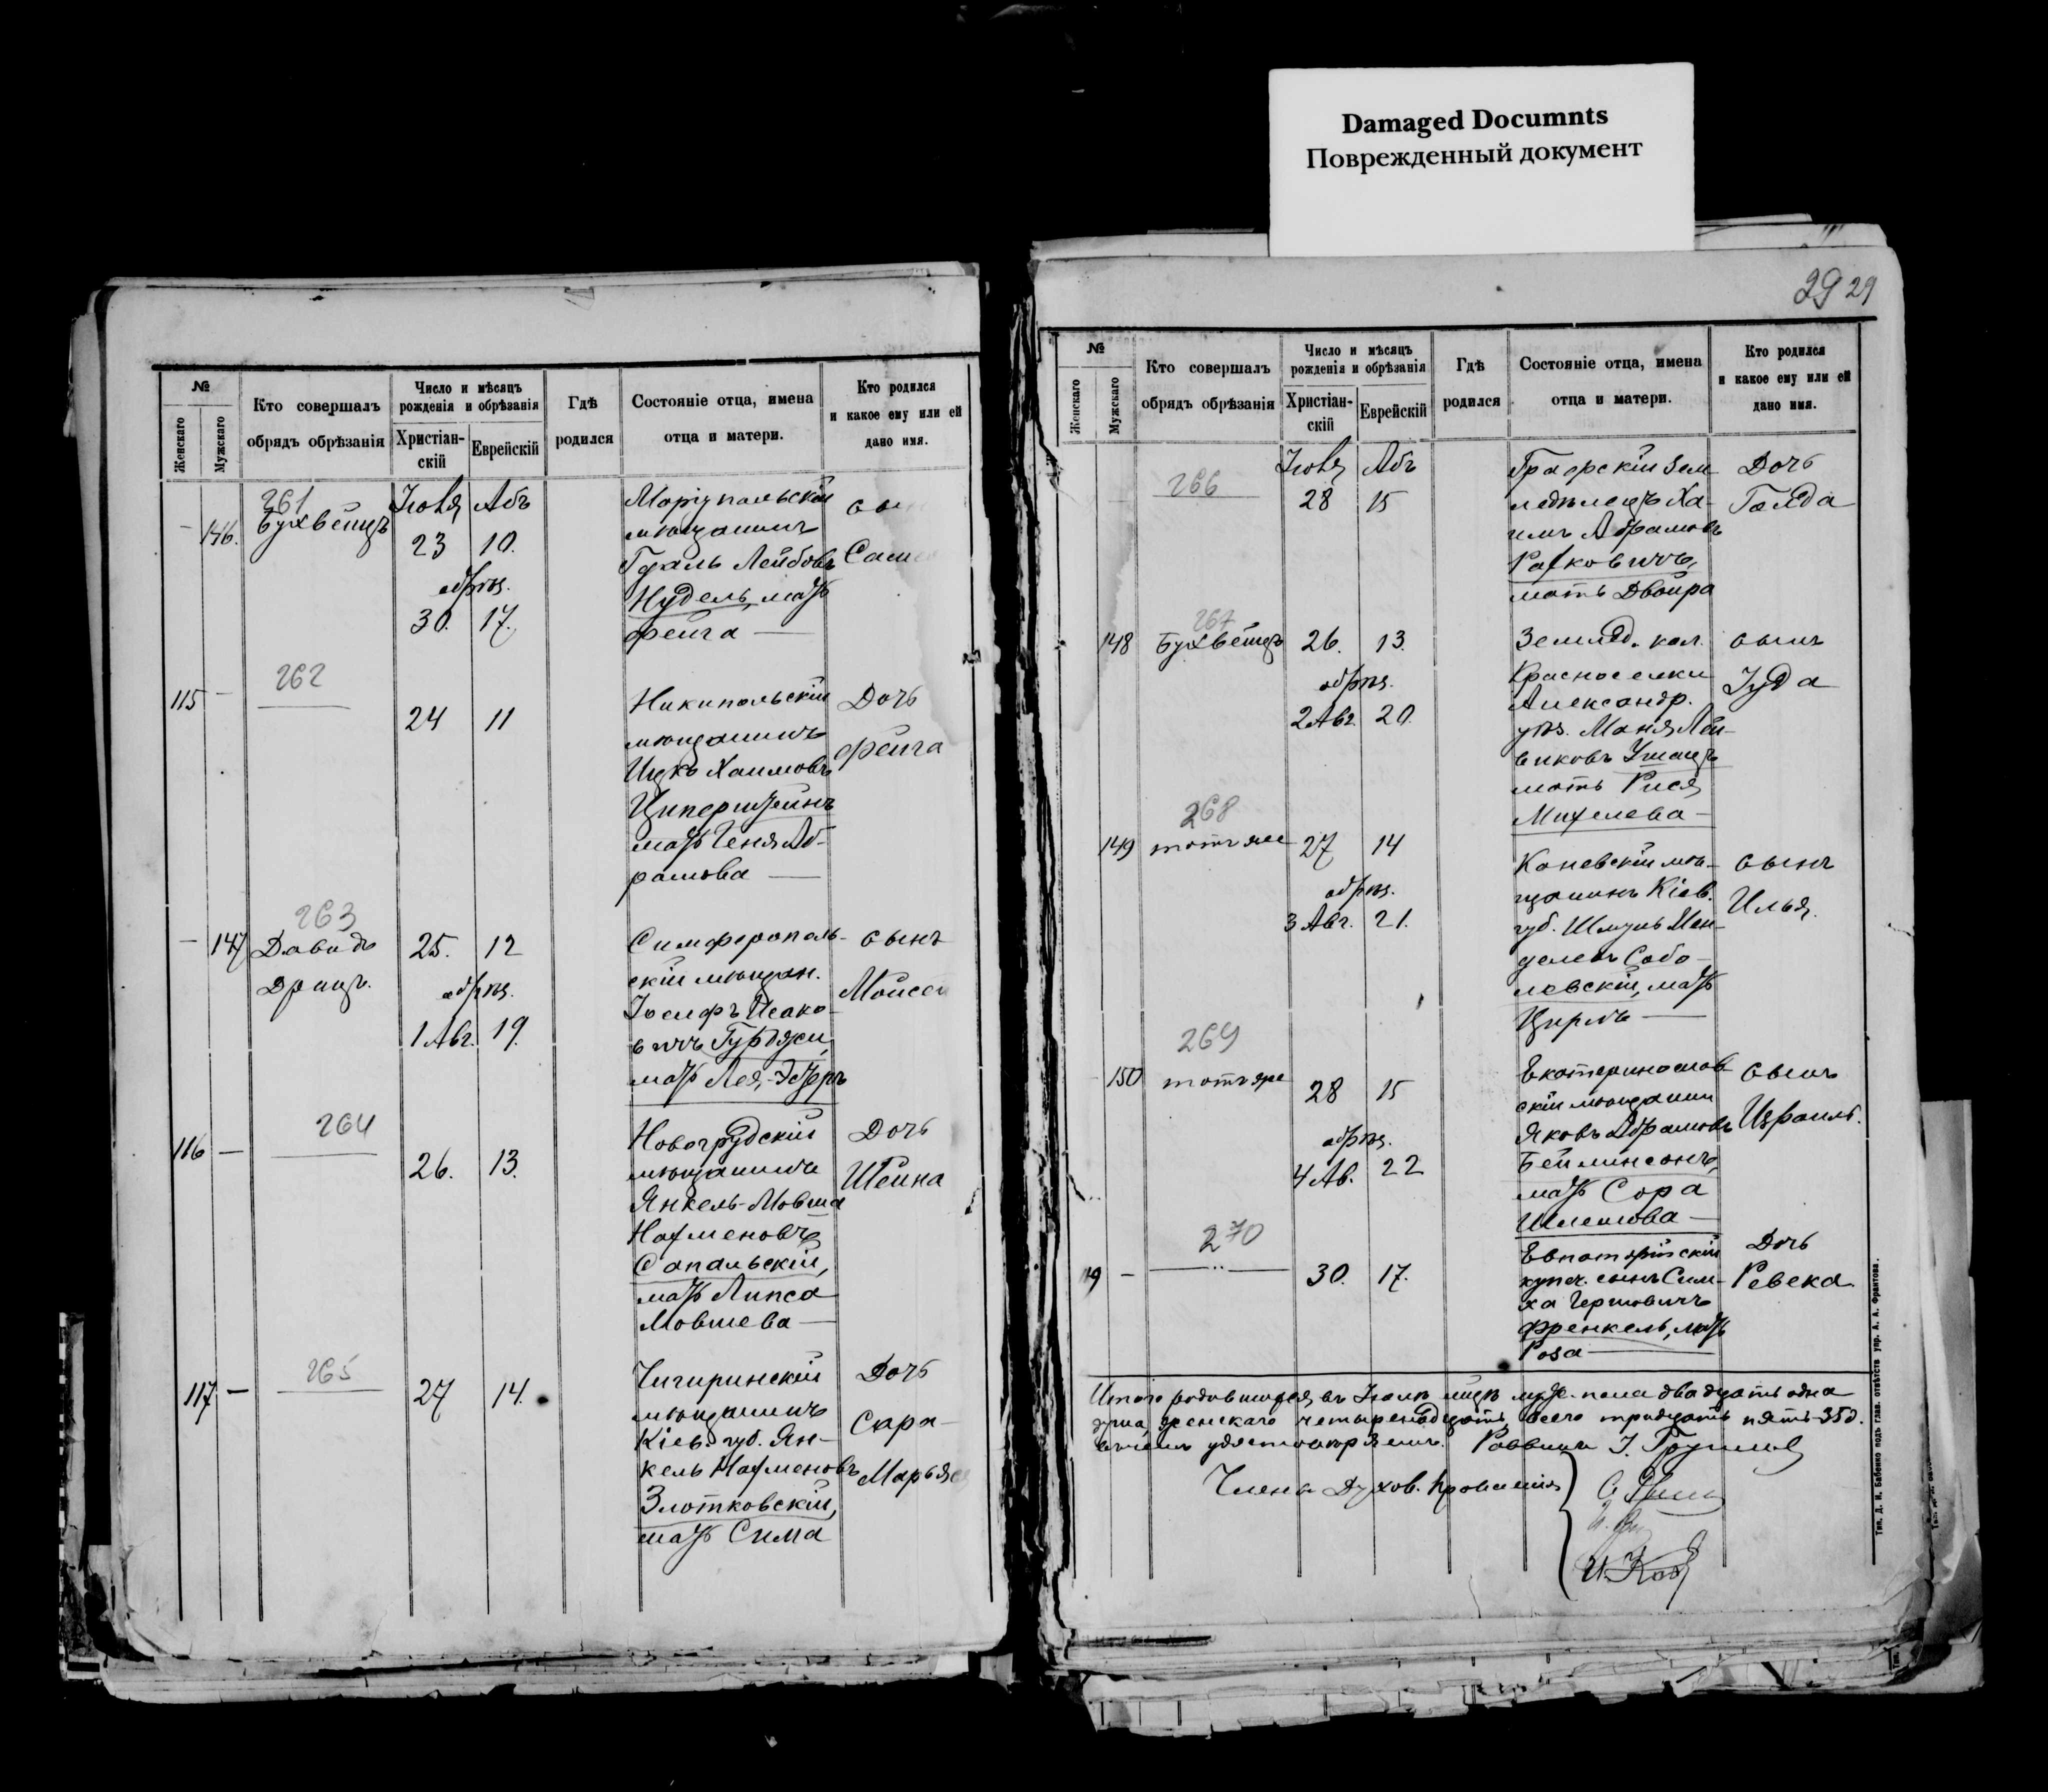 Damaged Documnts
Поврежденный документ
№
Женскаго
Мужскаго
Кто совершалъ
обрядъ обрѣзанія
Число и мѣсяцъ
рожденія и обрѣзанія
Христіан-
скій
Еврейскій
Гдѣ
родился
Состояніе отца, имена
отца и матери.
Кто родился
и какое ему или ей
дано имя.
261
— 146. Бухвейцъ
Іюля Абъ
23 10.
обрѣз.
30. 17.
Маріупольскій
мѣщанинъ
Гдаль Лейбовъ
Нудель, мать
Фейга —
сы
Сам
262
115 —
24 11
Никипольскій
мѣщанинъ
Ицкъ Хаимовъ
Циперштейнъ
мать Геня Аб-
рамова —
Дочь
Фейга
263
— 147 Давидъ
Драицъ.
25. 12
обрѣз.
1 Авг. 19.
Симферополь-
скій мѣщан.
Іосифъ Исако-
вичъ Гурджи,
мать Лея,-Эстеръ
сынъ
Моисей
264
116 —
26. 13.
Новогрудскій
мѣщанинъ
Янкель-Мовша
Нахменовъ
Сапальскій,
мать Липса
Мовшева —
Дочь
Шейна
265
117. —
27 14.
Чигиринскій
мѣщанинъ
Кіев. губ. Ян-
кель Нахменовъ
Злотковскій,
мать Сима
Дочь
Сара-
Марьяся
29 29
№
Женскаго
Мужскаго
Кто совершалъ
обрядъ обрѣзанія
Число и мѣсяцъ
рожденія и обрѣзанія
Христіан-
скій
Еврейскій
Гдѣ
родился
Состояніе отца, имена
отца и матери.
Кто родился
и какое ему или ей
дано имя.
266
Іюля Абъ
28 15
Графскій зем
ледѣлецъ Ха-
имъ Абрамовъ
Рахковичъ,
мать Двойра
Дочь
Голда
267
148 Бухвейцъ
26. 13.
обрѣз.
2 Авг. 20.
Землед. кол.
Красноселки
Александр.
уѣз. Маня Лей-
виковъ Уманцъ
мать Рися
Михелева —
сынъ
Іуда
268
149 тотъ же
27 14
обрѣз.
3 Авг. 21.
Каневскій мѣ-
щанинъ Кіев.
губ. Шмуль Мен-
делевъ Собо-
левскій, мать
Цирль —
сынъ
Илья.
269
150 тотъ же
28 15
обрѣз.
4 Ав. 22
Екатеринослав-
скій мѣщанин
Яковъ Абрамовъ
Бейлинсонъ,
мать Сора
Шлемова —
сынъ
Израиль.
270
119 —
30. 17.
Евпаторійскій
купеч. сынъ Сим-
ха Гершовичъ
Френкель, мать
Роза —
Дочь
Ревека
Итого родившихся въ Іюлѣ мцѣ муж. пола двадцать одна
душа, женскаго четырнадцать, всего тридцать пять-35 д.
въ чемъ удостовѣряемъ. Раввинъ
Члены Духов. Правленія
Тип. Д. И. Бабенко подъ глав. отвѣтств. упр. А. А. Франтова.